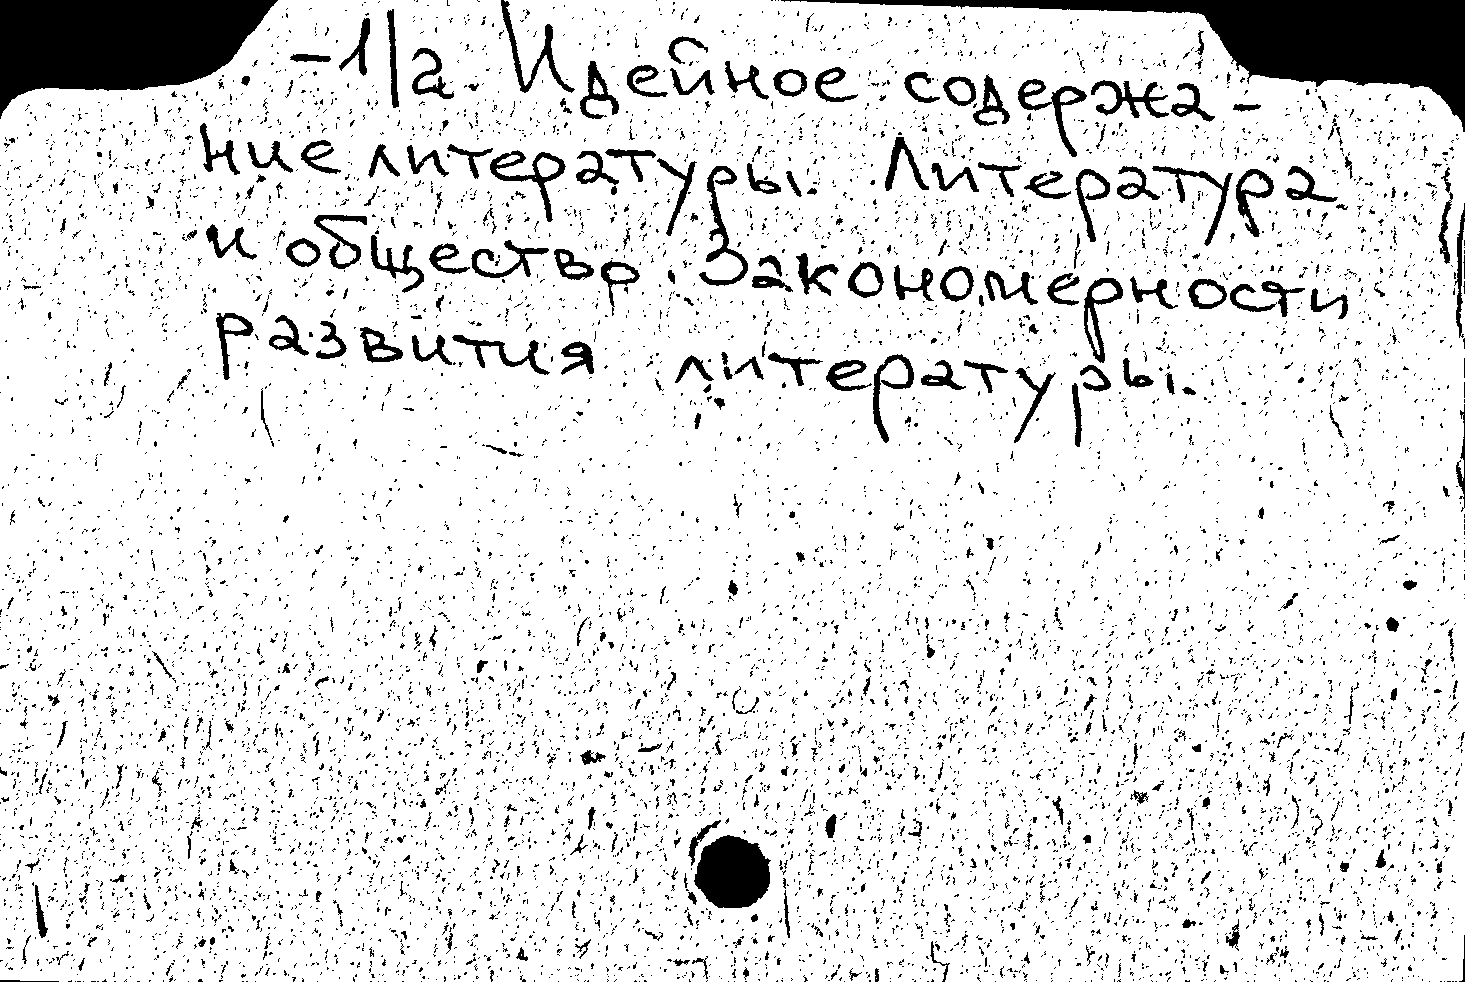 -1|а Идейное содержа-
ние литературы. Литература
и общество. Закономерности
развития литературы.